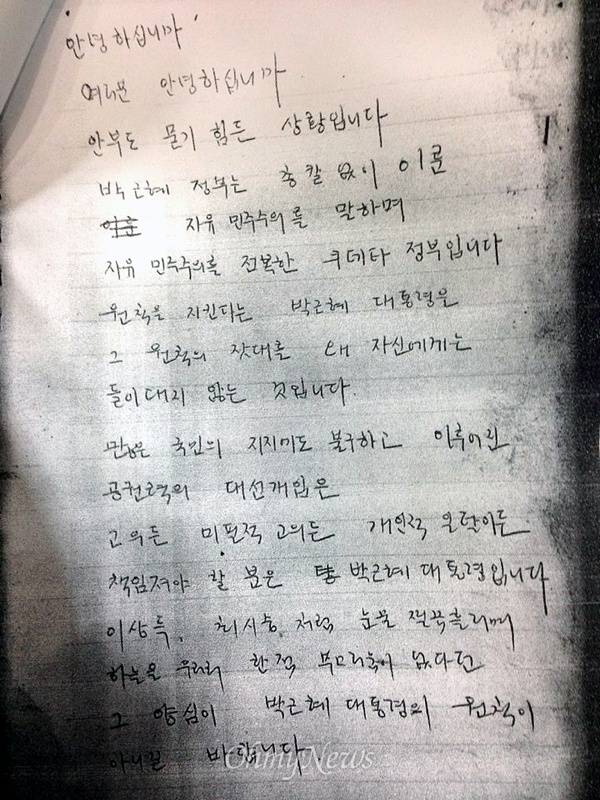 안녕하십니까
여러분 안녕하십니까
안부도 묻기 힘든 상황입니다
박근혜 정부는 총칼 없이 이룬
자유 민주주의를 말하며
자유 민주주의를 전복한 쿠데타 정부입니다
원칙을 지킨다는 박근혜 대통령은
그 원칙의 잣대를 왜 자신에게는
들이대지 않는 것입니다
많은 국민의 지지에도 불구하고 이루어진
공권력의 대선개입은
고의든 미필적 고의든 개인적 일탈이든
책임져야 할 분은 박근혜 대통령입니다
이상득, 최시중 처럼 눈물 찔끔흘리며
하늘을 우러러 한점 부끄러움이 없다던
그 양심이 박근혜 대통령의 원칙이
아니길 바랍니다
OhmyNews